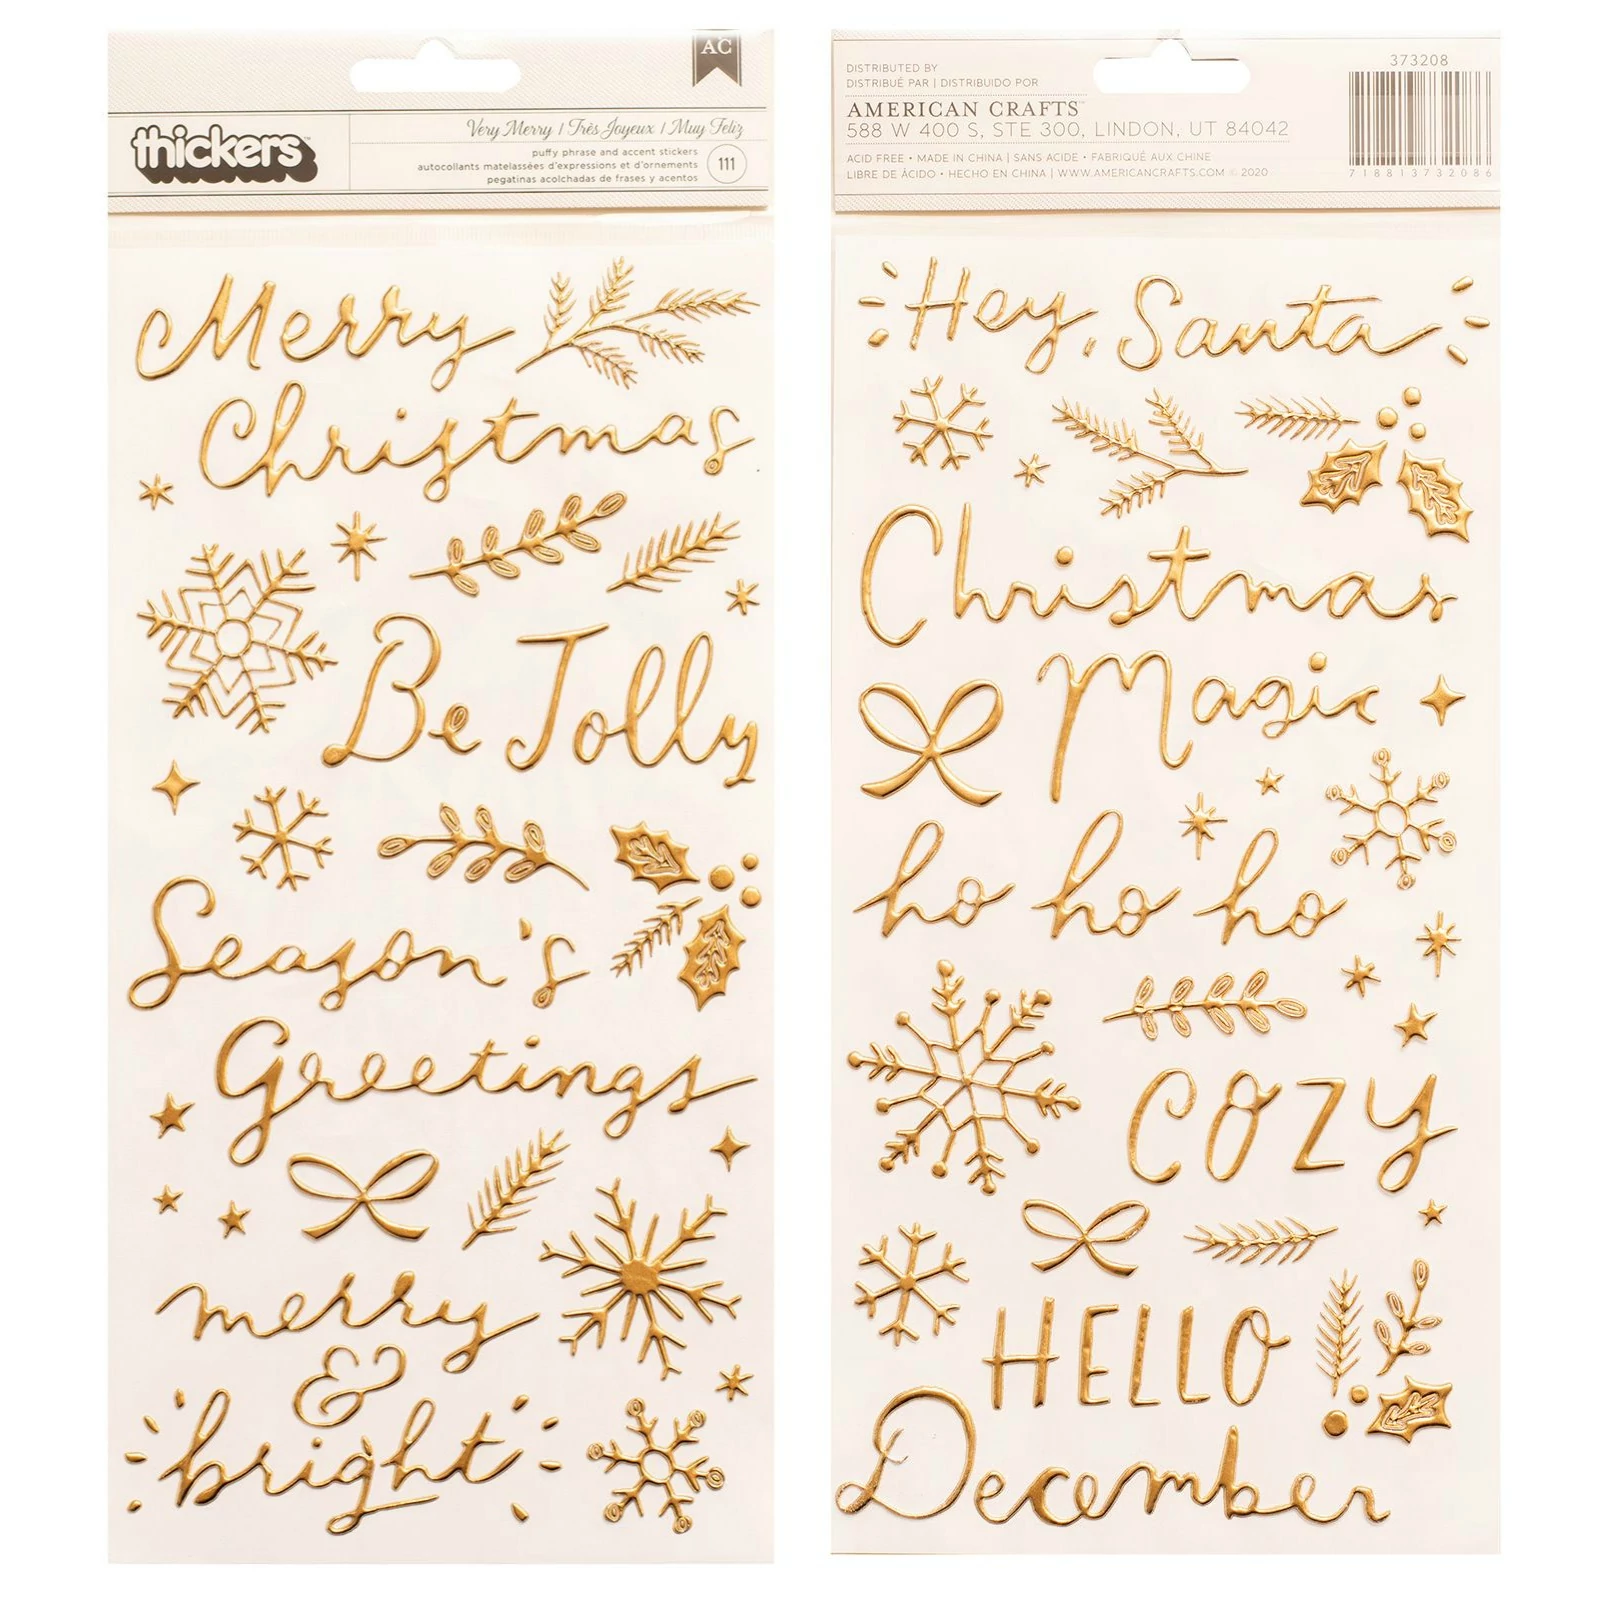 AC
thickers™
Very Merry / Très Joyeux / Muy Feliz
puffy phrase and accent stickers
autocollants matelassées d'expressions et d'ornements
pegatinas acolchadas de frases y acentos
111
Merry
Christmas
Be Jolly
Season's
Greetings
merry
&
bright
DISTRIBUTED BY
DISTRIBUÉ PAR | DISTRIBUIDO POR
AMERICAN CRAFTS™
588 W 400 S, STE 300, LINDON, UT 84042
ACID FREE • MADE IN CHINA | SANS ACIDE • FABRIQUÉ AUX CHINE
LIBRE DE ÁCIDO • HECHO EN CHINA | WWW.AMERICANCRAFTS.COM © 2020
373208
718813732086
Hey, Santa
Christmas
Magic
ho ho ho
COZY
HELLO
December